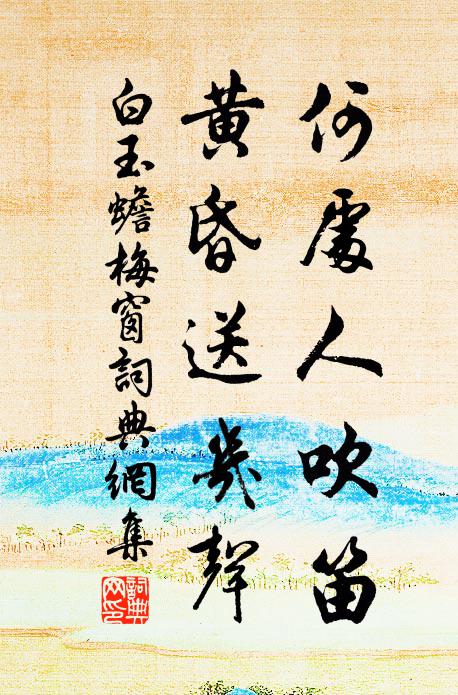 何處人吹笛
黃昏送幾聲
白玉蟾梅窗詞典網集